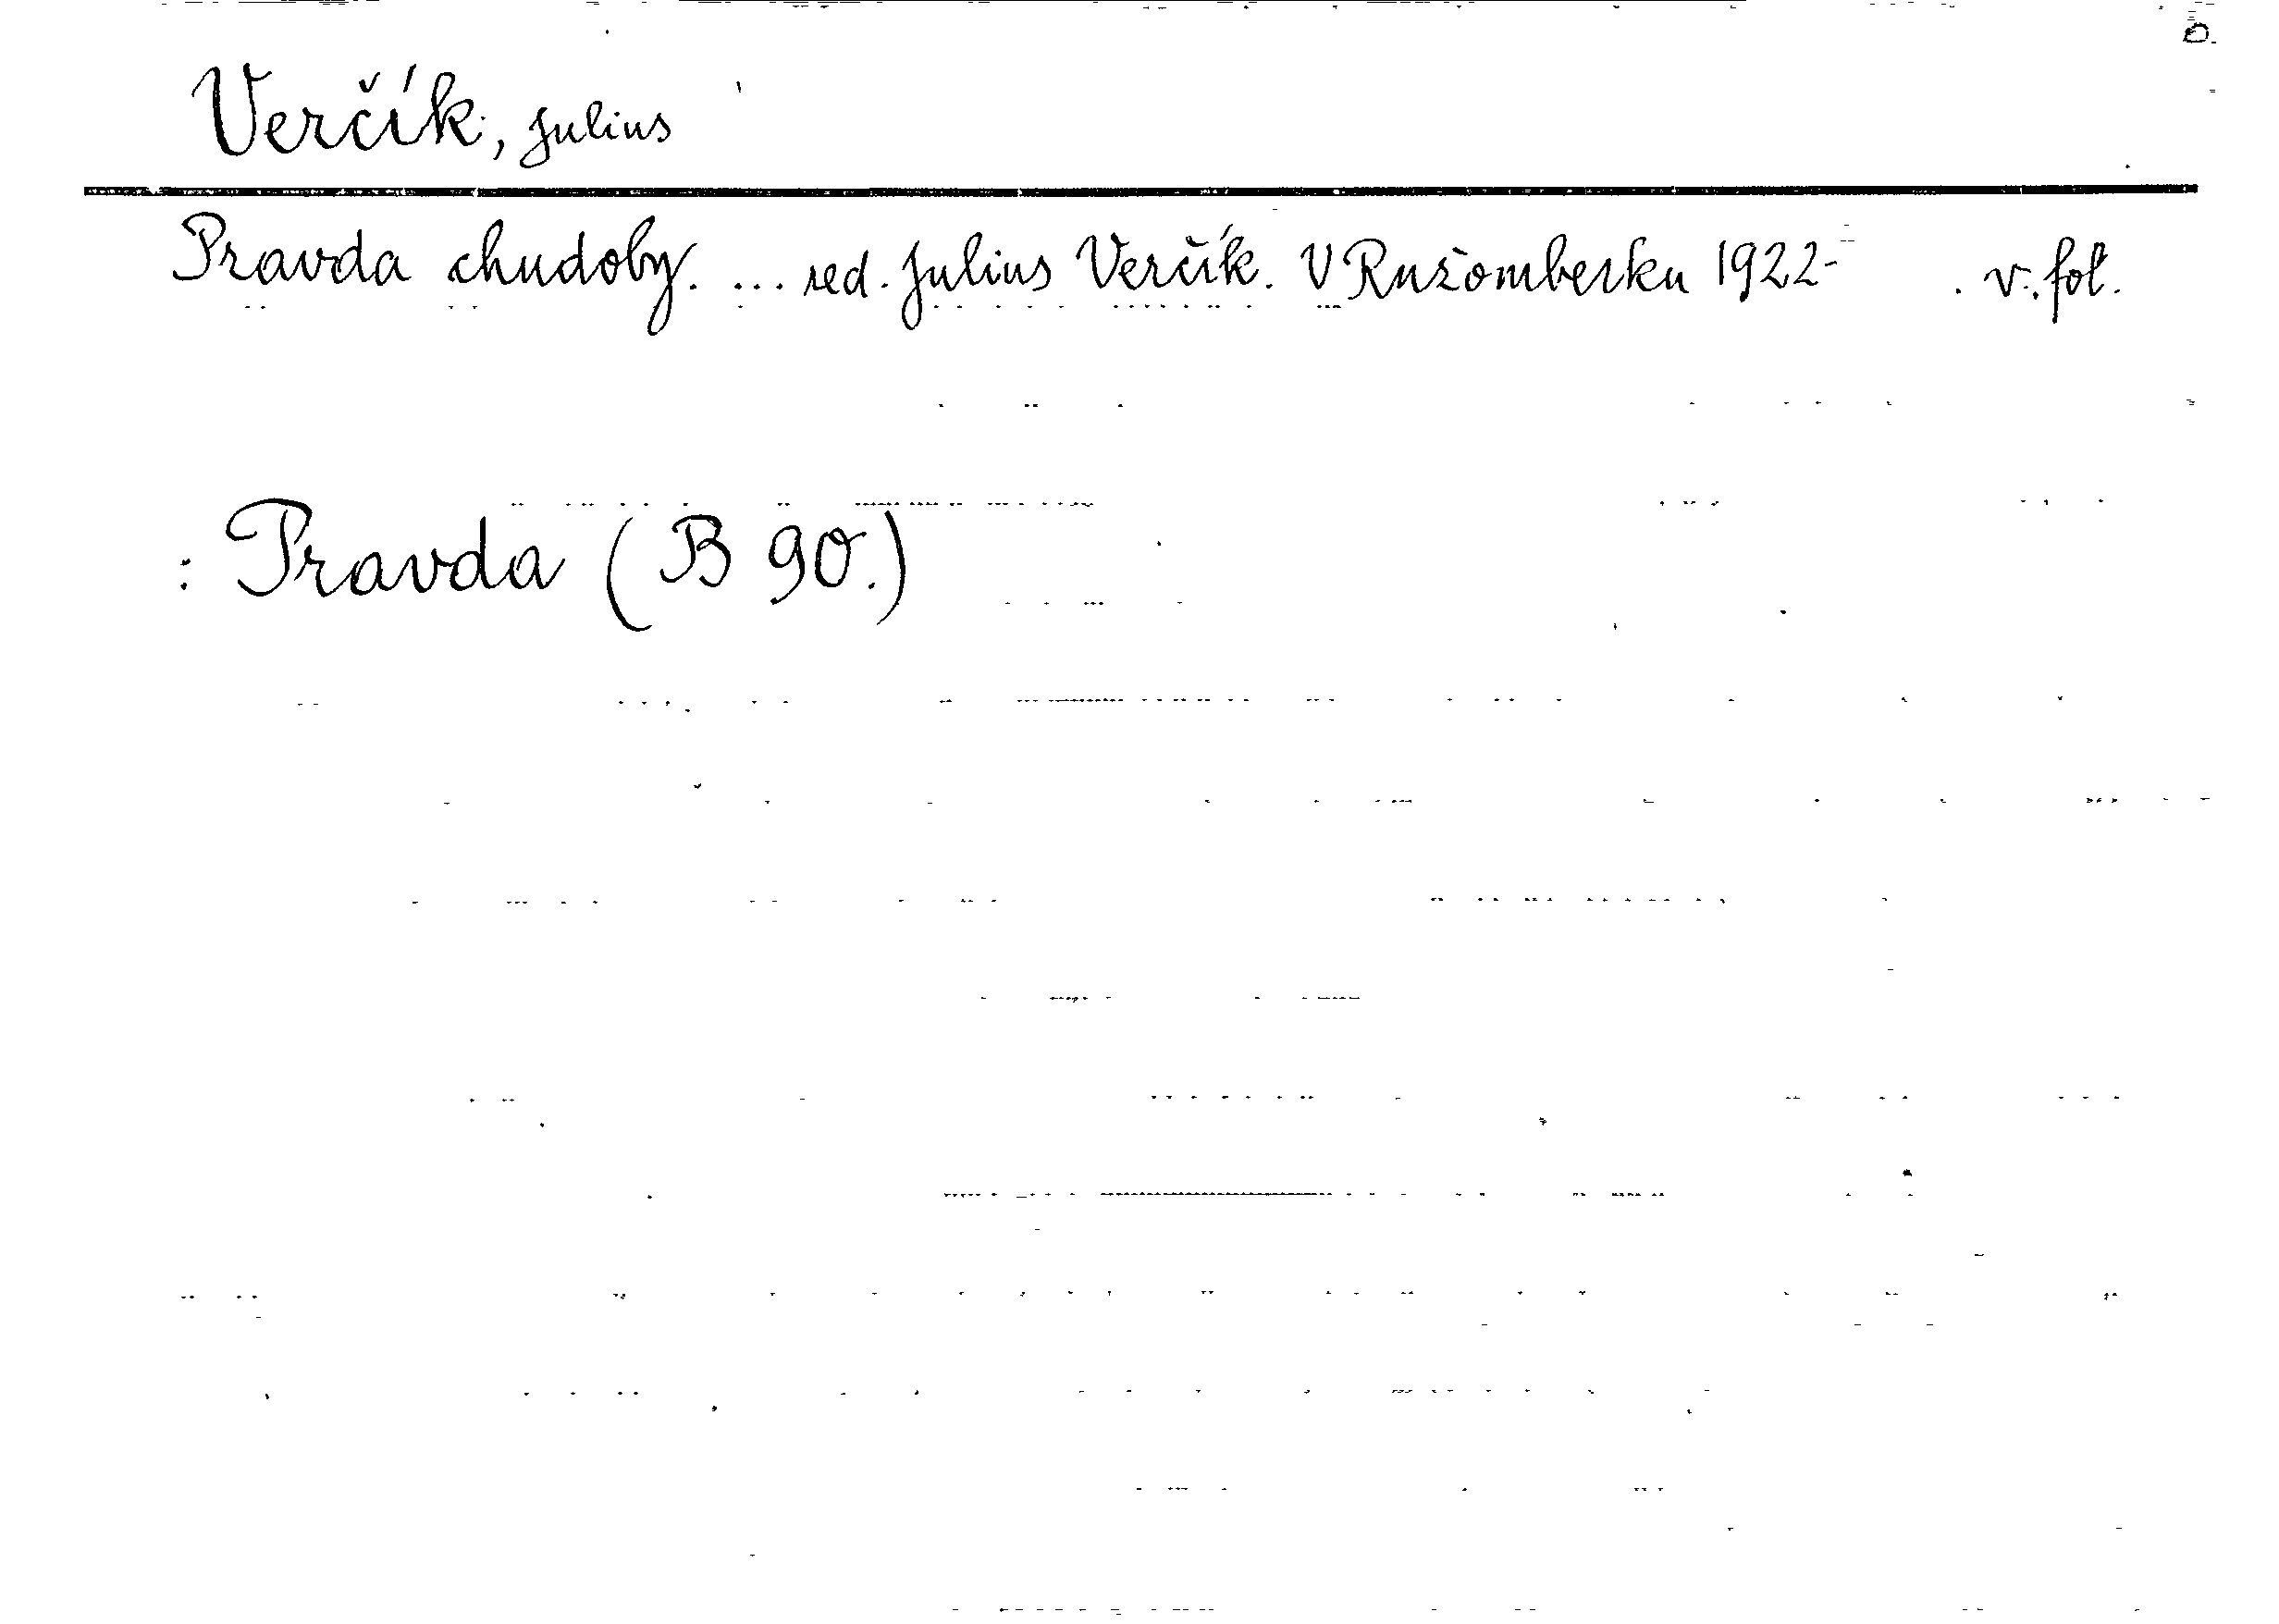 Verčík, Julius
Pravda chudoby. ... red. Julius Verčík. V Ružomberku 1922- . v. fol.
: Pravda (B 90.)